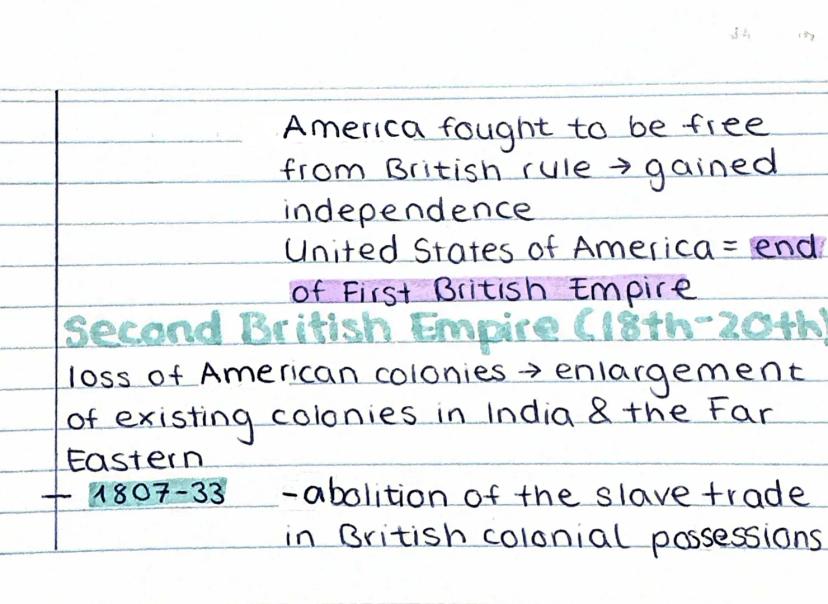 America fought to be free
from British rule → gained
independence
United States of America = end
of First British Empire
Second British Empire (18th-20th)
loss of American colonies → enlargement
of existing colonies in India & the Far
Eastern
1807-33 -abolition of the slave trade
in British colonial possessions